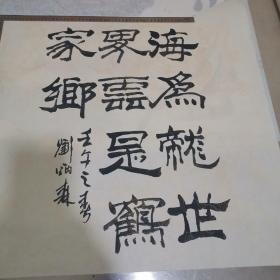 海為龍世
界雲是鶴
家鄉
壬午之春
劉炳森